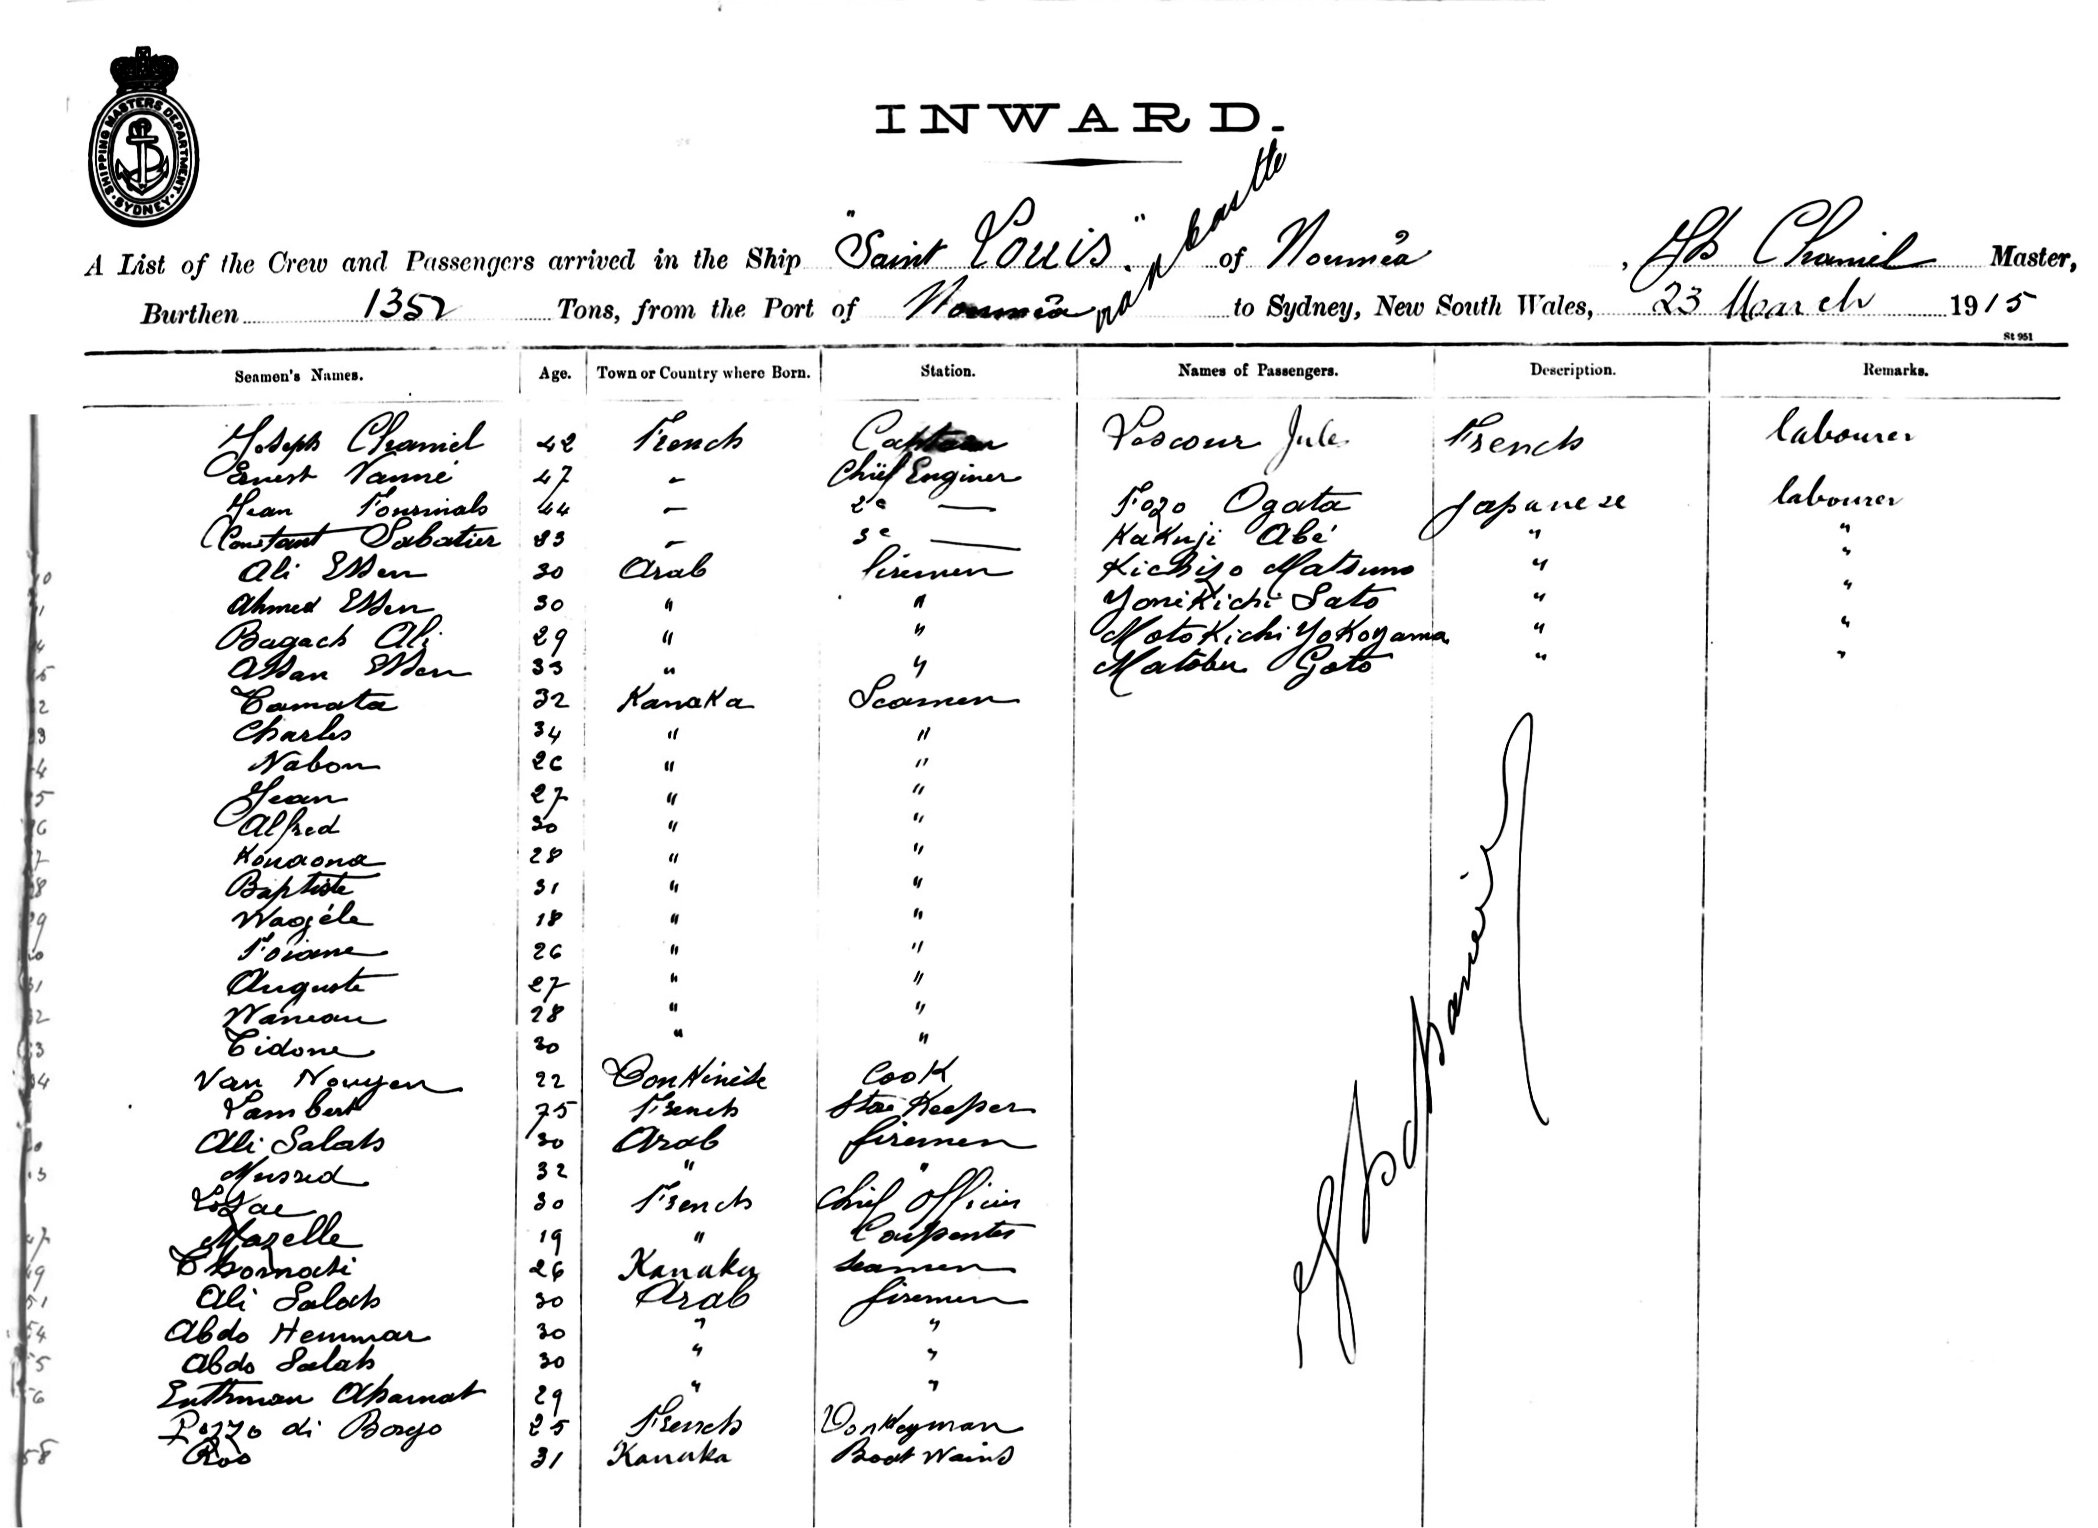 SHIPPING MASTERS DEPARTMENT
SYDNEY
INWARD.
A List of the Crew and Passengers arrived in the Ship "Saint Louis" of Nouméa, Jh Chamiel Master,
Burthen 1352 Tons, from the Port of Nouméa via Newcastle to Sydney, New South Wales, 23 March 1915
St 951
Seamen's Names. Age. Town or Country where Born. Station. Names of Passengers. Description. Remarks.
Joseph Chamiel 42 French Captain Lescour Jules French labourer
Ernest Vanné 47 - Chief Enginer
Jean 44 - 2e — Tozo Ogata Japanese labourer
Constant Sabatier 33 - 3e — Kakuji Abé " "
Ali Essen 30 Arab firemen Kichizo Matsuno " "
Ahmed Essen 30 " " Yonekichi Sato " "
Bagach Ali 29 " " Motokichi Yokoyama " "
Assan Essen 33 " " Matobu Goto " "
Tamata 32 Kanaka Seamen
Charles 34 " "
Nabon 26 " "
Jean 27 " "
Alfred 30 " "
Konaona 28 " "
Baptiste 31 " "
Wagéle 18 " "
Toiane 26 " "
Auguste 27 " "
Waneau 28 " "
Tidone 30 " "
Van Nouyen 22 Tonkinese Cook
Lambert 75 French Store Keeper
Ali Salah 30 Arab firemen
Mussed 32 " "
30 French Chief Officier
Mazelle 19 " Carpenter
26 Kanaka seamen
Ali Salah 30 Arab firemen
Abdo Hemmar 30 " "
Abdo Salah 30 " "
Euthman Ahamat 29 " "
Pozzo di Borgo 25 French Donkeyman
Roo 31 Kanaka Boatwains